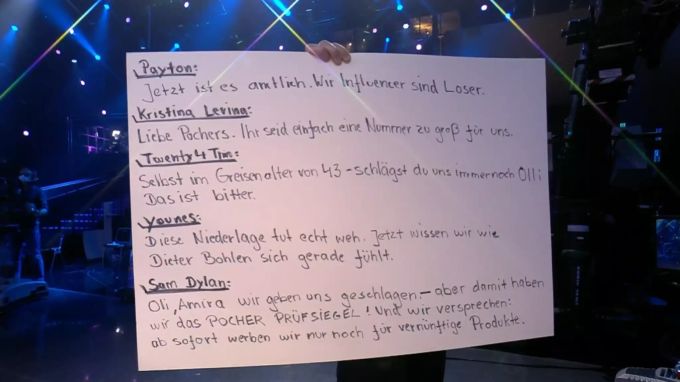 Payton:
Jetzt ist es amtlich. Wir Influencer sind Loser.
Kristina Levina:
Liebe Pochers. Ihr seid einfach eine Nummer zu groß für uns.
Twenty4 Tim:
Selbst im Greisenalter von 43 - schlägst du uns immer noch Olli
Das ist bitter.
Younes:
Diese Niederlage tut echt weh. Jetzt wissen wir wie
Dieter Bohlen sich gerade fühlt.
Sam Dylan:
Oli, Amira wir geben uns geschlagen - aber damit haben
wir das POCHER PRÜFSIEGEL! Und wir versprechen:
ab sofort werben wir nur noch für vernünftige Produkte.